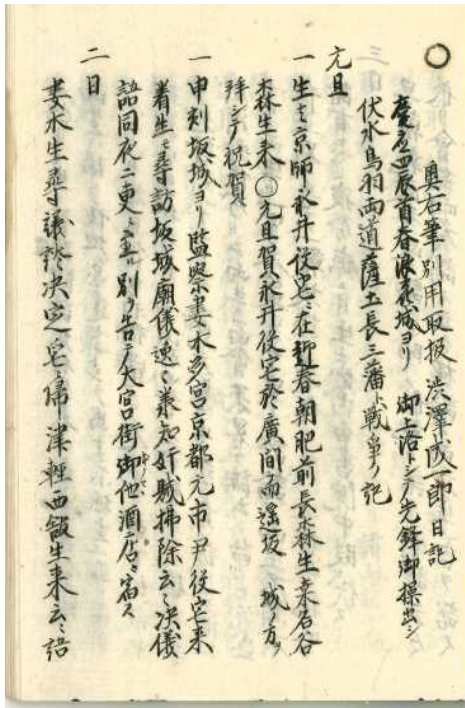 ○
奥右筆別用取扱 渋澤成一郎日記
慶應四辰首春浪花城ヨリ 御上洛トシテ先鋒御操出シ
伏水鳥羽両道薩土長三藩ト戦争ノ記
元旦
一 生モ京師永井役宅ニ在迎春朝肥前長森生桒名谷
森生来○元旦賀永井役宅於廣間而遥坂 城ノ方ヲ
拝シテ祝賀
一 申刻坂城ヨリ監察妻木多宮京都元市尹役宅来
着生モ尋訪坂城廟儀速ニ兼知奸賊掃除云々决儀
語同夜二更ニ至テ別ヲ告テ大宮街御他酒店ニ宿ス
二日
妻木生尋議談决定宅ニ帰ル津軽西舘生来云々語